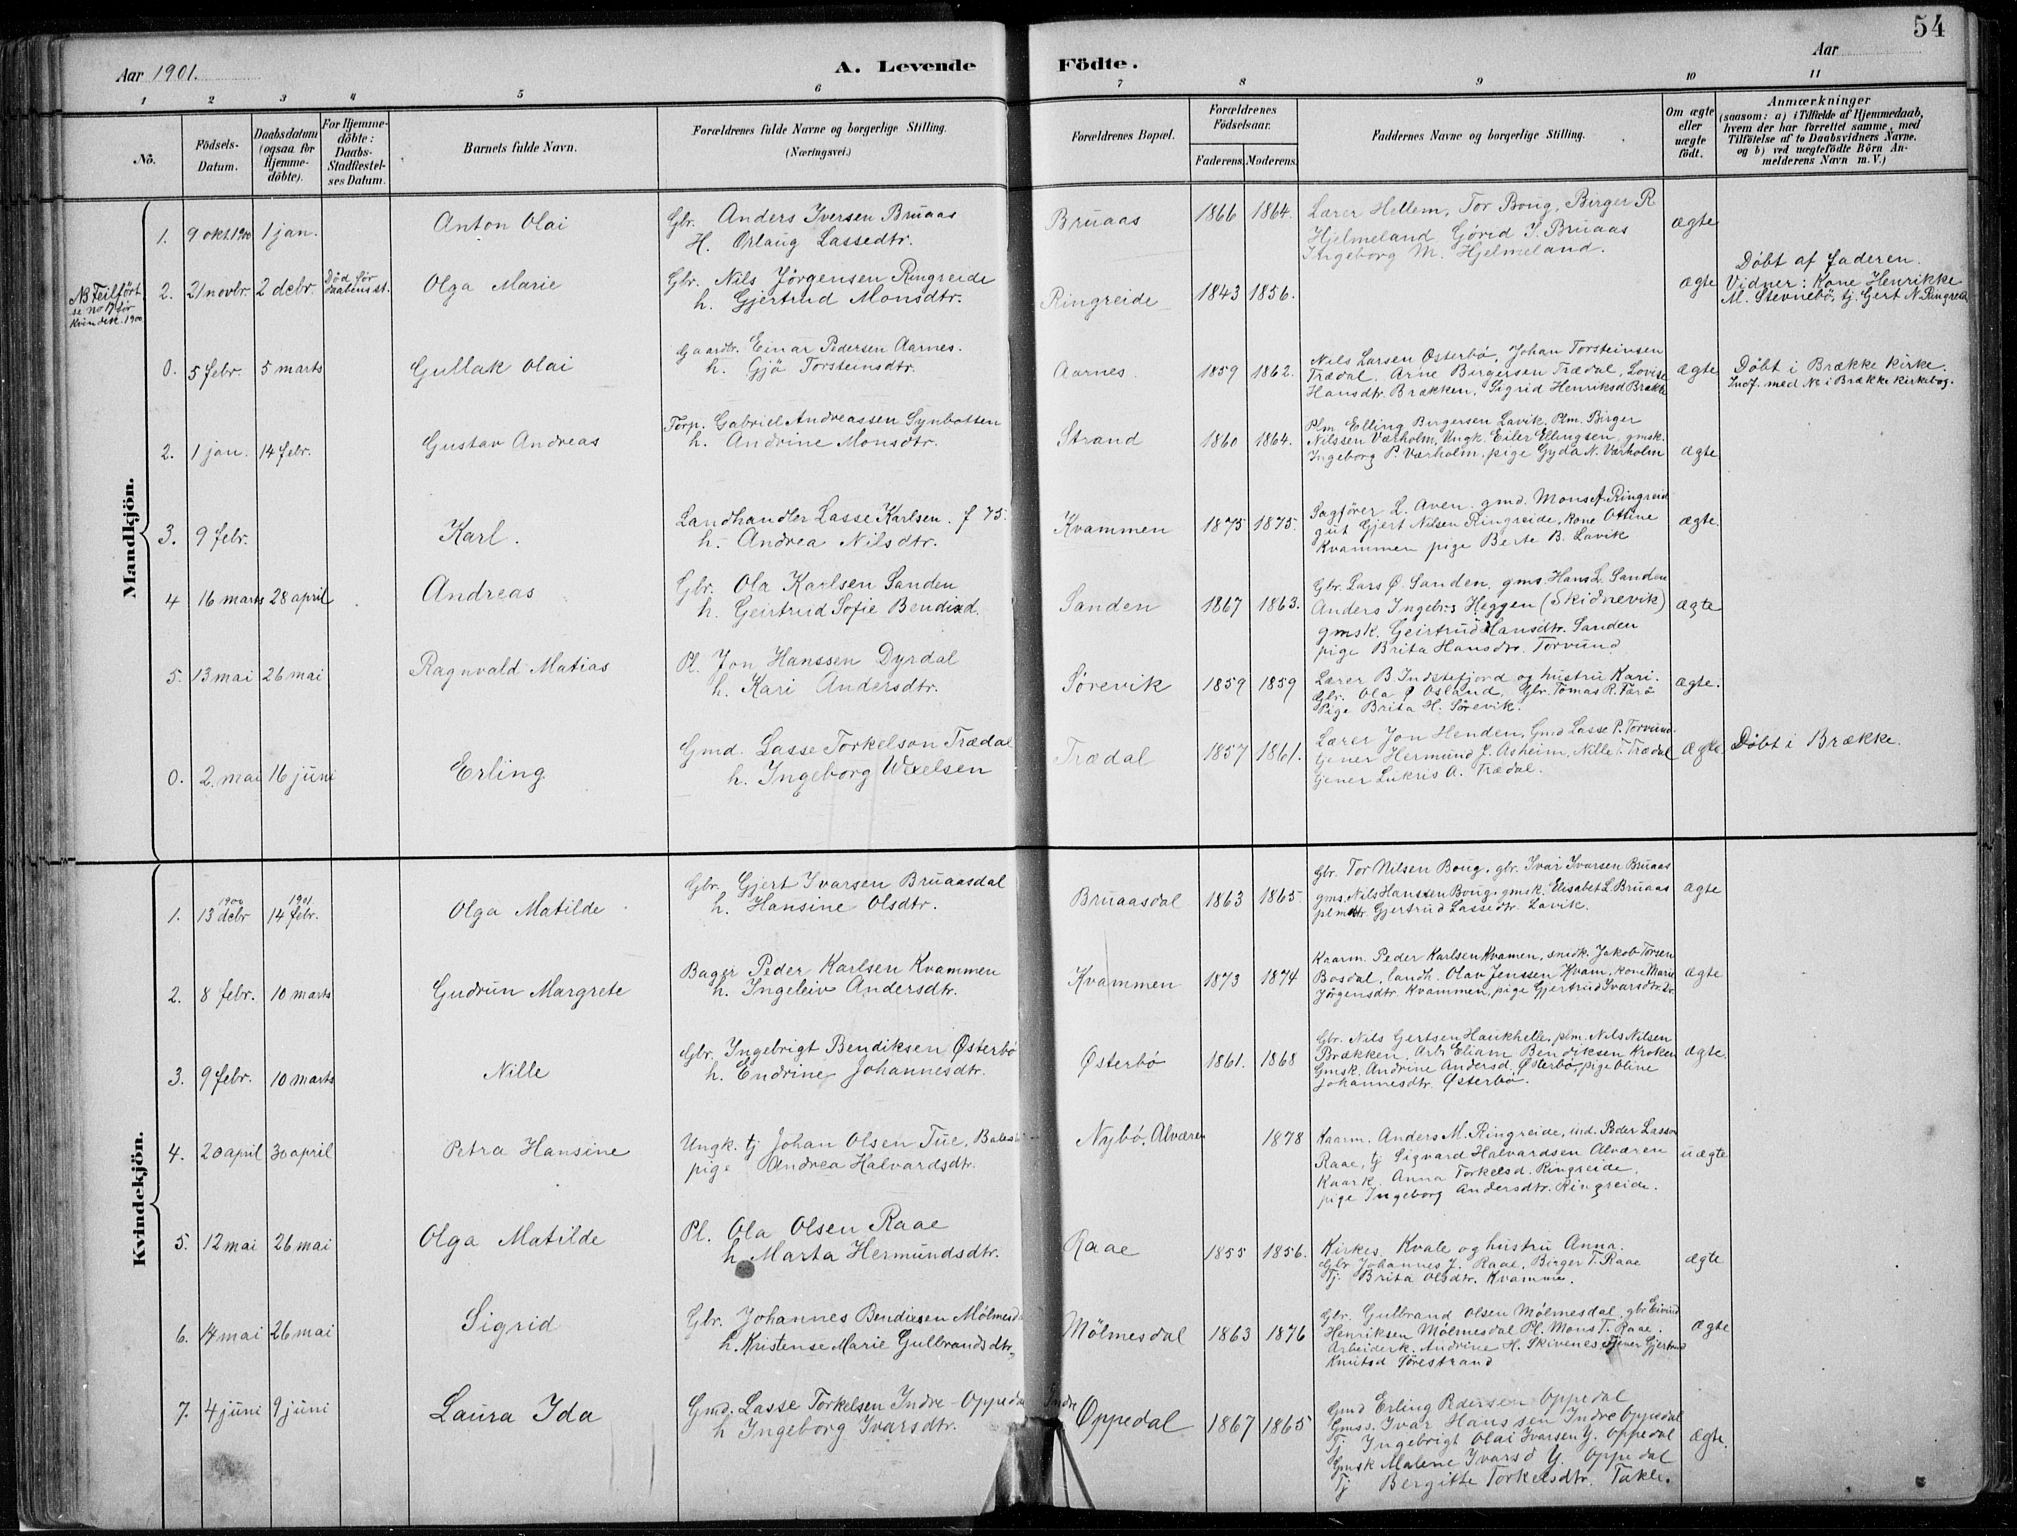 54
Aar 1901.
A. Levende Födte.
Aar
1 2 3 4 5 6 7 8 9 10 11
No.
Födsels-Datum.
Daabsdatum (ogsaa for Hjemme-döbte).
For Hjemme-döbte: Daabs-Stadfæstel-ses Datum.
Barnets fulde Navn.
Forældrenes fulde Navne og borgerlige Stilling. (Næringsvei.)
Forældrenes Bopæl.
Forældrenes Födselsaar.
Faderens. Moderens.
Faddernes Navne og borgerlige Stilling.
Om ægte eller uægte födt.
Anmærkninger
(saasom: a) i Tilfælde af Hjemmedaab, hvem der har forrettet samme, med Tilföielse af to Daabsvidners Navne. og b) ved uægtefödte Börn An-melderens Navn m. V.)
Mandkjön.
1. 9 okt. 1900 1 jan. Anton Olai
Gbr. Anders Iversen Bruaas
H. Orlaug Lassedtr.
Bruaas 1866 1864.
Lærer Hellem, Tor Boug, Birger R
Hjelmeland, Görid I. Bruaas
Ingeborg M. Hjelmeland.
ægte
NB Feilført se no 17 for kvindek. 1900
2. 21 novbr. 2 debr. Død før daabens st. Olga Marie
Gbr. Nils Jørgensen Ringreide
h. Gjertrud Monsdtr.
Ringreide 1843 1856.
ægte
Døbt af faderen.
Vidner: Kone Henrikke
M. Stevnebö, tj. Gert N. Ringreid
0. 5 febr. 5 marts Gullak Olai
Gaardbr. Einar Pedersen Aarnes.
h. Gjö Torsteinsdtr.
Aarnes. 1859 1862.
Nils Larsen Osterbö, Johan Torsteinsen
Trædal, Arne Birgersen Trædal, Lovise
Hansdtr. Brækken, Sigrid Henriksd Brække
ægte
Døbt i Brække kirke.
Indf. med No i Brække kirkebog.
2. 1 jan. 14 febr. Gustav Andreas
Torp. Gabriel Andreassen Synbotten
h. Andrine Monsdtr.
Strand 1860 1864.
Plm. Elling Birgersen Lavik, Plm. Birger
Nilssen Værholm, Ungk. Eiler Ellingsen, gmsk.
Ingeborg P. Værholm, pige Gyda N. Værholm
ægte
3. 9 febr. Karl.
Landhandler Lasse Karlsen. f 75.
h. Andrea Nilsdtr.
Kvammen 1875 1875.
Sagfører L. Aven. gmd. Mons A. Ringreid
gut Gjert Nilsen Ringreide, kone Ottine
Kvammen pige Berte B. Lavik
ægte.
4 16 marts 28 april Andreas
Gbr. Ola Karlsen Sanden
h. Geirtrud Sofie Bendixd.
Sanden 1867 1863.
Gbr. Lars Ø. Sanden, gms. Hans L. Sanden
Anders Ingebr.s Heggen (Skidnevik)
gmsk. Geirtrud Hansdtr. Sanden
pige Brita Hansdtr. Torvund
ægte
5. 13 mai 26 mai Ragnvald Matias
Pl. Jon Hanssen Dyrdal
h. Kari Andersdtr.
Sørevik 1859 1859
Lærer B. Indstefjord og hustru Kari.
Gbr. Ola Ø Osland, Gbr. Tomas R. Farö
Pige Brita H. Sørevik.
ægte.
0. 2. mai 16 juni Erling
Gmd. Lasse Torkelson Trædal
h. Ingeborg Wexelsen
Trædal 1857 1861.
Lærer Jon Henden, Gmd Lasse P. Torvund
tjener Hermund J. Asheim, Nille T. Trædal
tjener Lukris A. Trædal.
ægte
Döbt i Brække.
Kvindekjön.
1. 13 debr 1900 14 febr. 1901 Olga Matilde
Gbr. Gjert Ivarsen Bruaasdal
h. Hansine Olsdtr.
Bruaasdal 1863 1865.
Gbr. Tor Nilsen Boug, gbr. Ivar Ivarsen Bruaas
gms. Nils Hanssen Boug, gmsk. Elisabet L. Bruaas
plmdtr. Gjertrud Lassedtr. Lavik.
ægte
2. 8 febr. 10 marts Gudrun Margrete
Bager Peder Karlsen Kvammen
h. Ingeleiv Andersdtr.
Kvammen 1873 1874
Kaarm. Peder Karlsen Kvamen, snedk. Jakob Torsen
Bosdal, landh. Olav Jenssen Kvam, kone Marie
Jørgensdtr. Kvammen, pige Gjertrud Ivarsdtr.
ægte
3. 9 febr. 10 marts Nille
Gbr. Ingebrigt Bendiksen Østerbö
h. Endrine Johannesdtr.
Østerbö 1861. 1868
Gbr. Nils Gertsen Haukhelle, plm. Nils Nilsen
Brækken, Arb. Eliam Bendiksen Kroken
Gmsk. Andrine Andersd. Østerbö, pige Oline
Johannesdtr. Østerbö.
ægte.
4. 20 april 30 april Petra Hansine
Ungk. tj Johan Olsen Tue, Balest
pige Andrea Halvardsdtr.
Nybö. Alværen 1878
Kaarm. Anders M. Ringreide, ind. Peder Lasson
Raae, tj Sigvard Halvardsen Alværen
Kaark. Anna Torkelsd. Ringreide.
pige Ingeborg Andersdtr. Ringreide.
uægte
5. 12 mai 26 mai Olga Matilde
Pl. Ola Olsen Raae
h. Marta Hermundsdtr.
Raae 1855 1856.
Kirkes. Kvale og hustru Anna.
Gbr Johannes J. Raae, Birger T. Raae
Tj. Brita Olsdtr. Kvamme.
ægte
6. 14 mai 26 mai Sigrid
Gbr. Johannes Bendixen Mølmesda
h. Kristense Marie Gulbrandsdtr.
Mølmesdal 1863 1876
Gbr. Gulbrand Olsen Mølmesdal, gbr Eivind
Henriksen Mølmesdal Pl. Mons T. Raae.
Arbeiderk. Andrine H. Skivenes Tjener Gjertrud
Knutsd Sørestrand
ægte
7. 4 juni 9 juni Laura Ida
Gmd. Lasse Torkelsen Indre Oppeda
h Ingeborg Ivarsdtr.
Indre Oppedal 1867 1865
Gmd Erling Rdersen Oppedal
Gmss. Ivar Hanssen Indre Oppedal
Tj Ingebrigt Olai Ivarsen Y. Oppedal
Gmsk Malene Ivarsd Y. Oppedal
Tj Bergitte Torkelsdtr. Takle.
ægte.